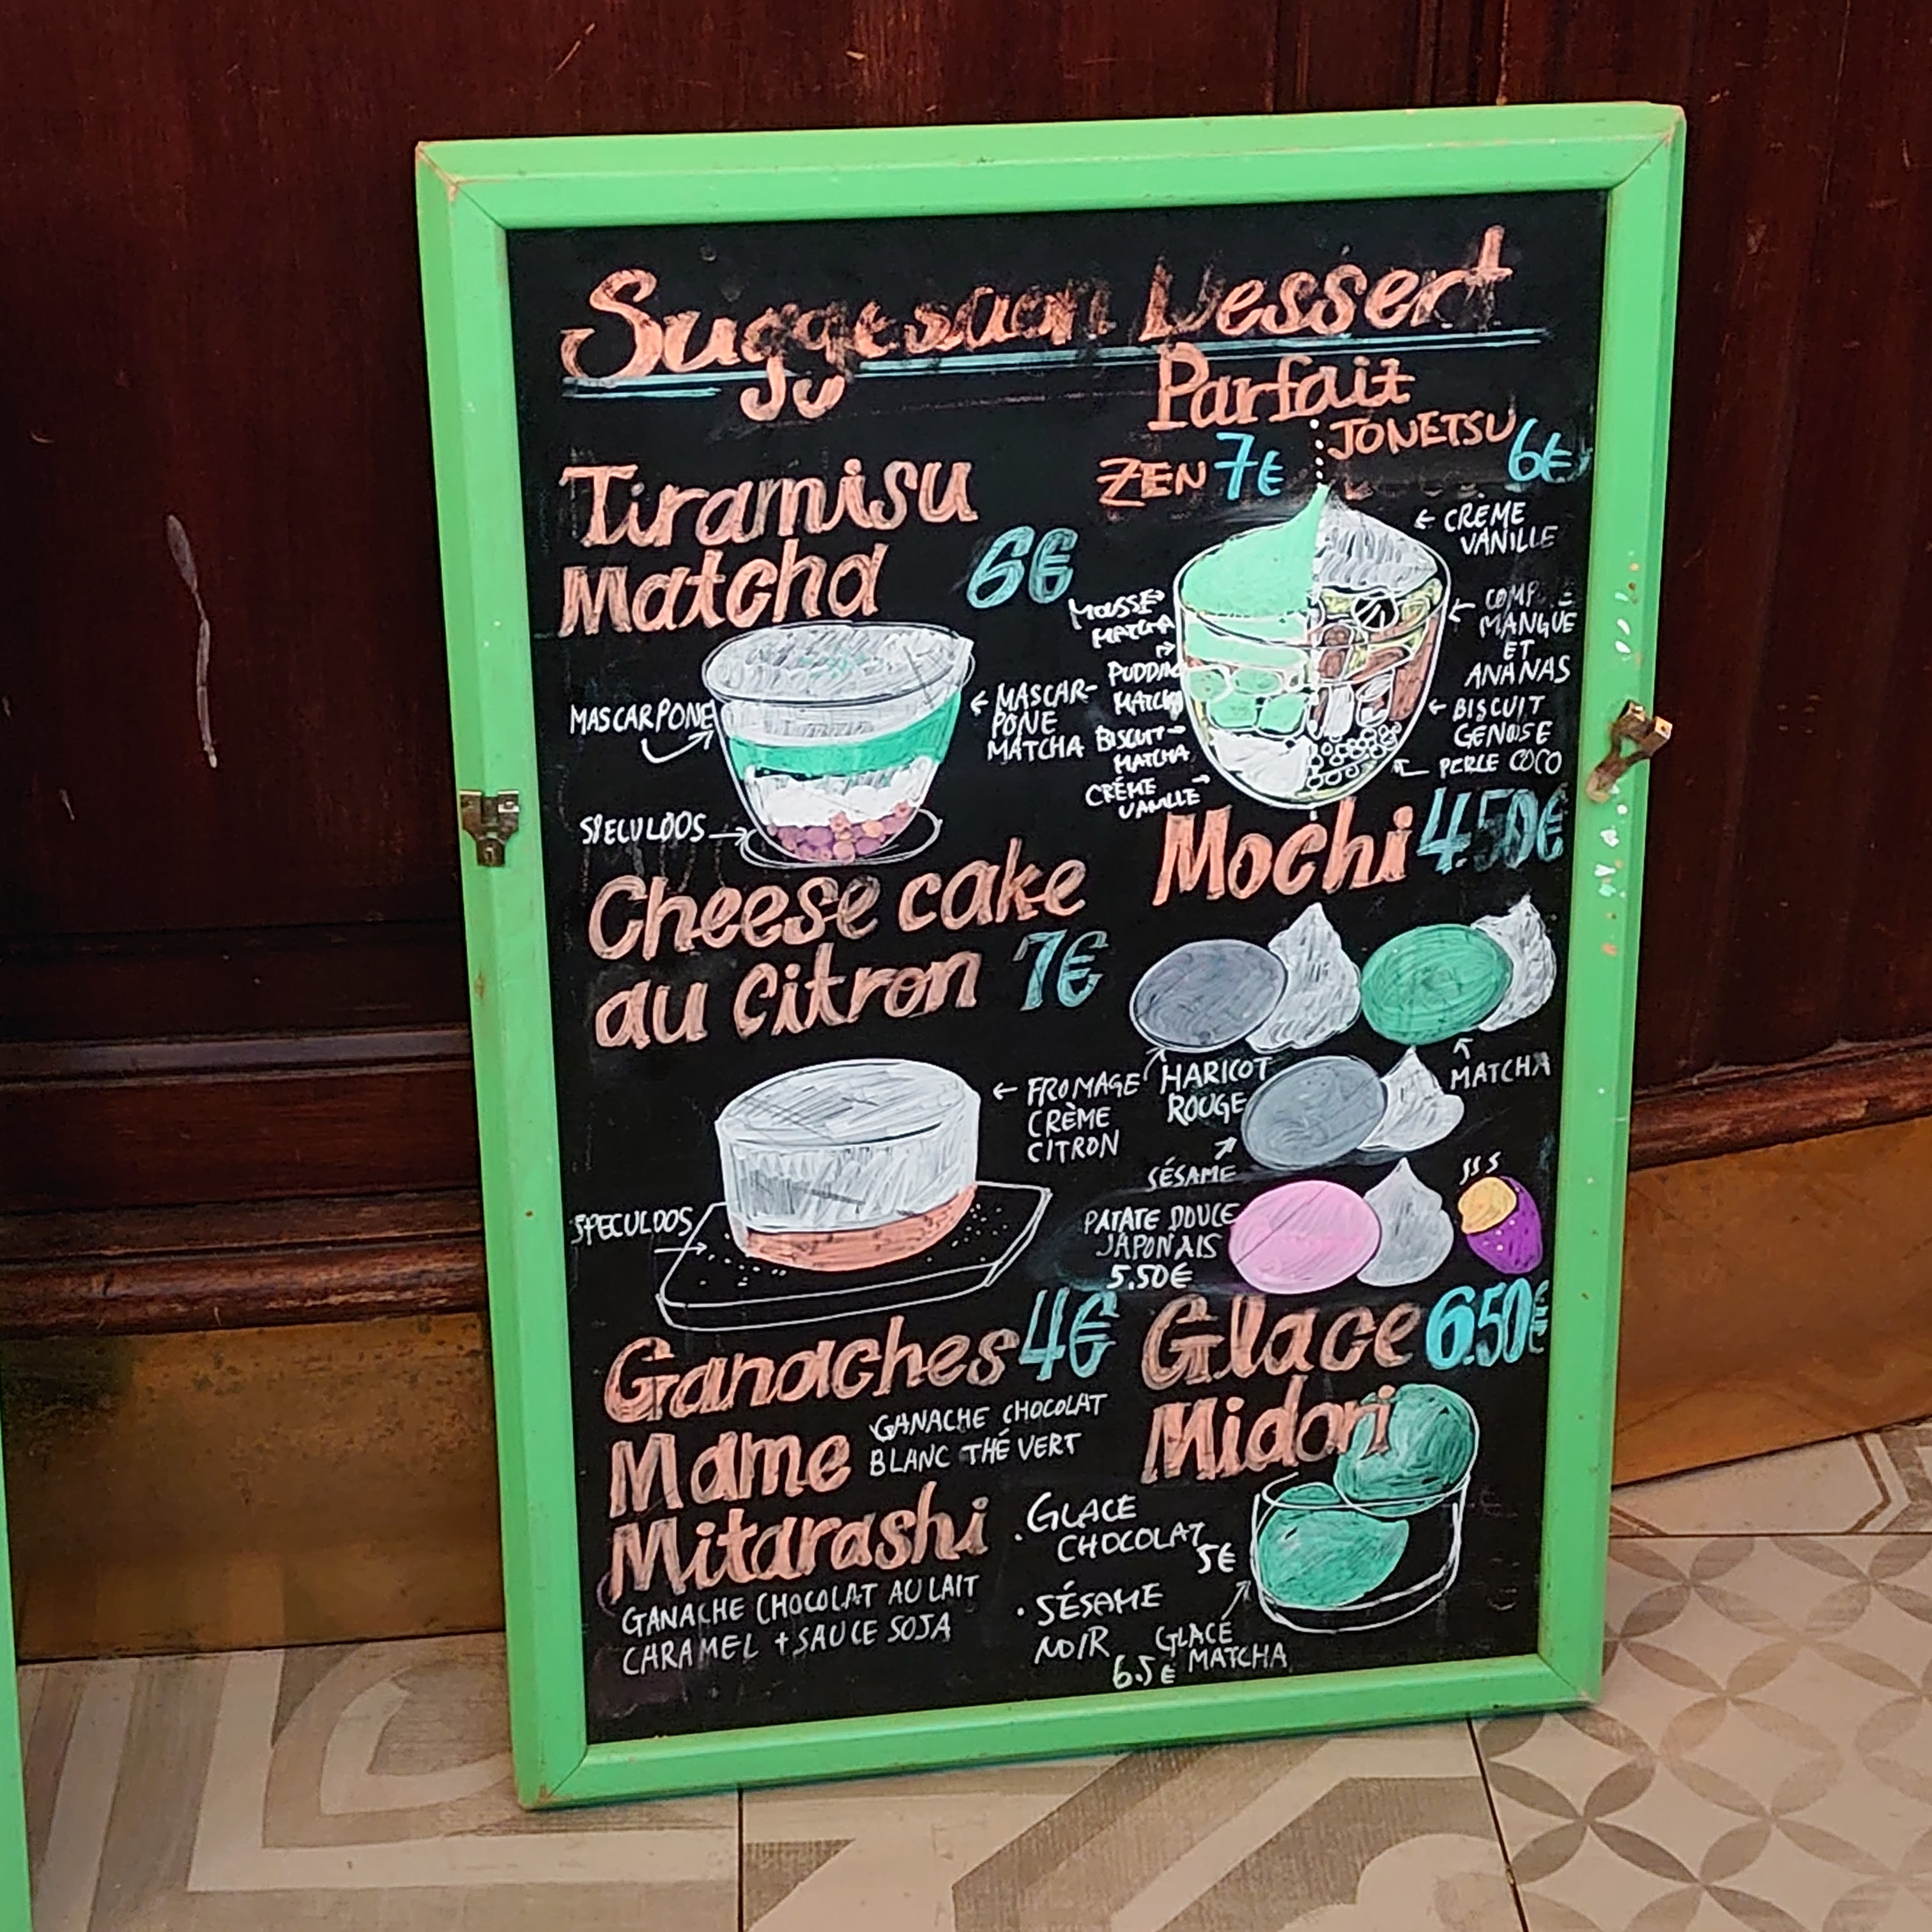 Suggestion Dessert
Tiramisu
Matcha 6€
MASCARPONE
MASCAR-
PONE
MATCHA
SPECULOOS
Cheese cake
au Citron 7€
FROMAGE
CRÈME
CITRON
SPECULOOS
Ganaches 4€
Mame
GANACHE CHOCOLAT
BLANC THÉ VERT
Mitarashi
GANACHE CHOCOLAT AU LAIT
CARAMEL + SAUCE SOJA
Parfait
ZEN 7€
JONETSU 6€
MOUSSE
MATCHA
PUDDING
MATCHA
BISCUIT
MATCHA
CRÈME
VANILLE
CRÈME
VANILLE
MANGUE
ET
ANANAS
BISCUIT
GENOISE
PERLE COCO
Mochi 4.50€
HARICOT
ROUGE
MATCHA
SÉSAME
PATATE DOUCE
JAPONAIS
5.50€
Glace 6.50€
Midori
. GLACE
CHOCOLAT
5€
. SÉSAME
NOIR
6.5€
GLACE
MATCHA